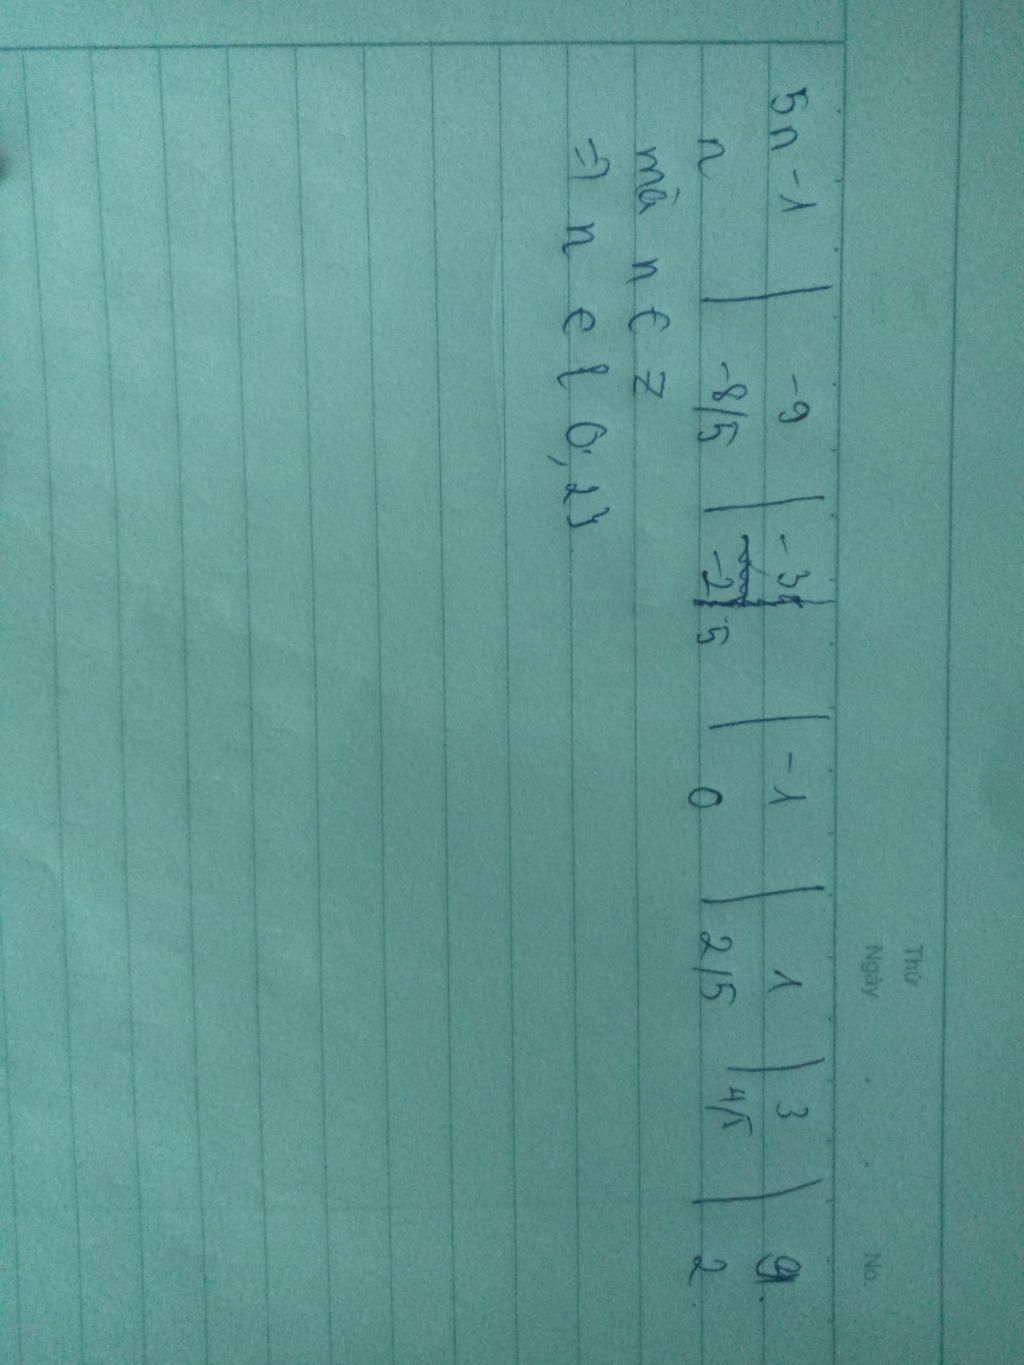 Thứ
Ngày No.
5n -1 | -9 | -3 | -1 | 1 | 3 | 9
n | -8/5 | -2/5 | 0 | 2/5 | 4/5 | 2
mà n ∈ Z
=> n ∈ { 0, 2}